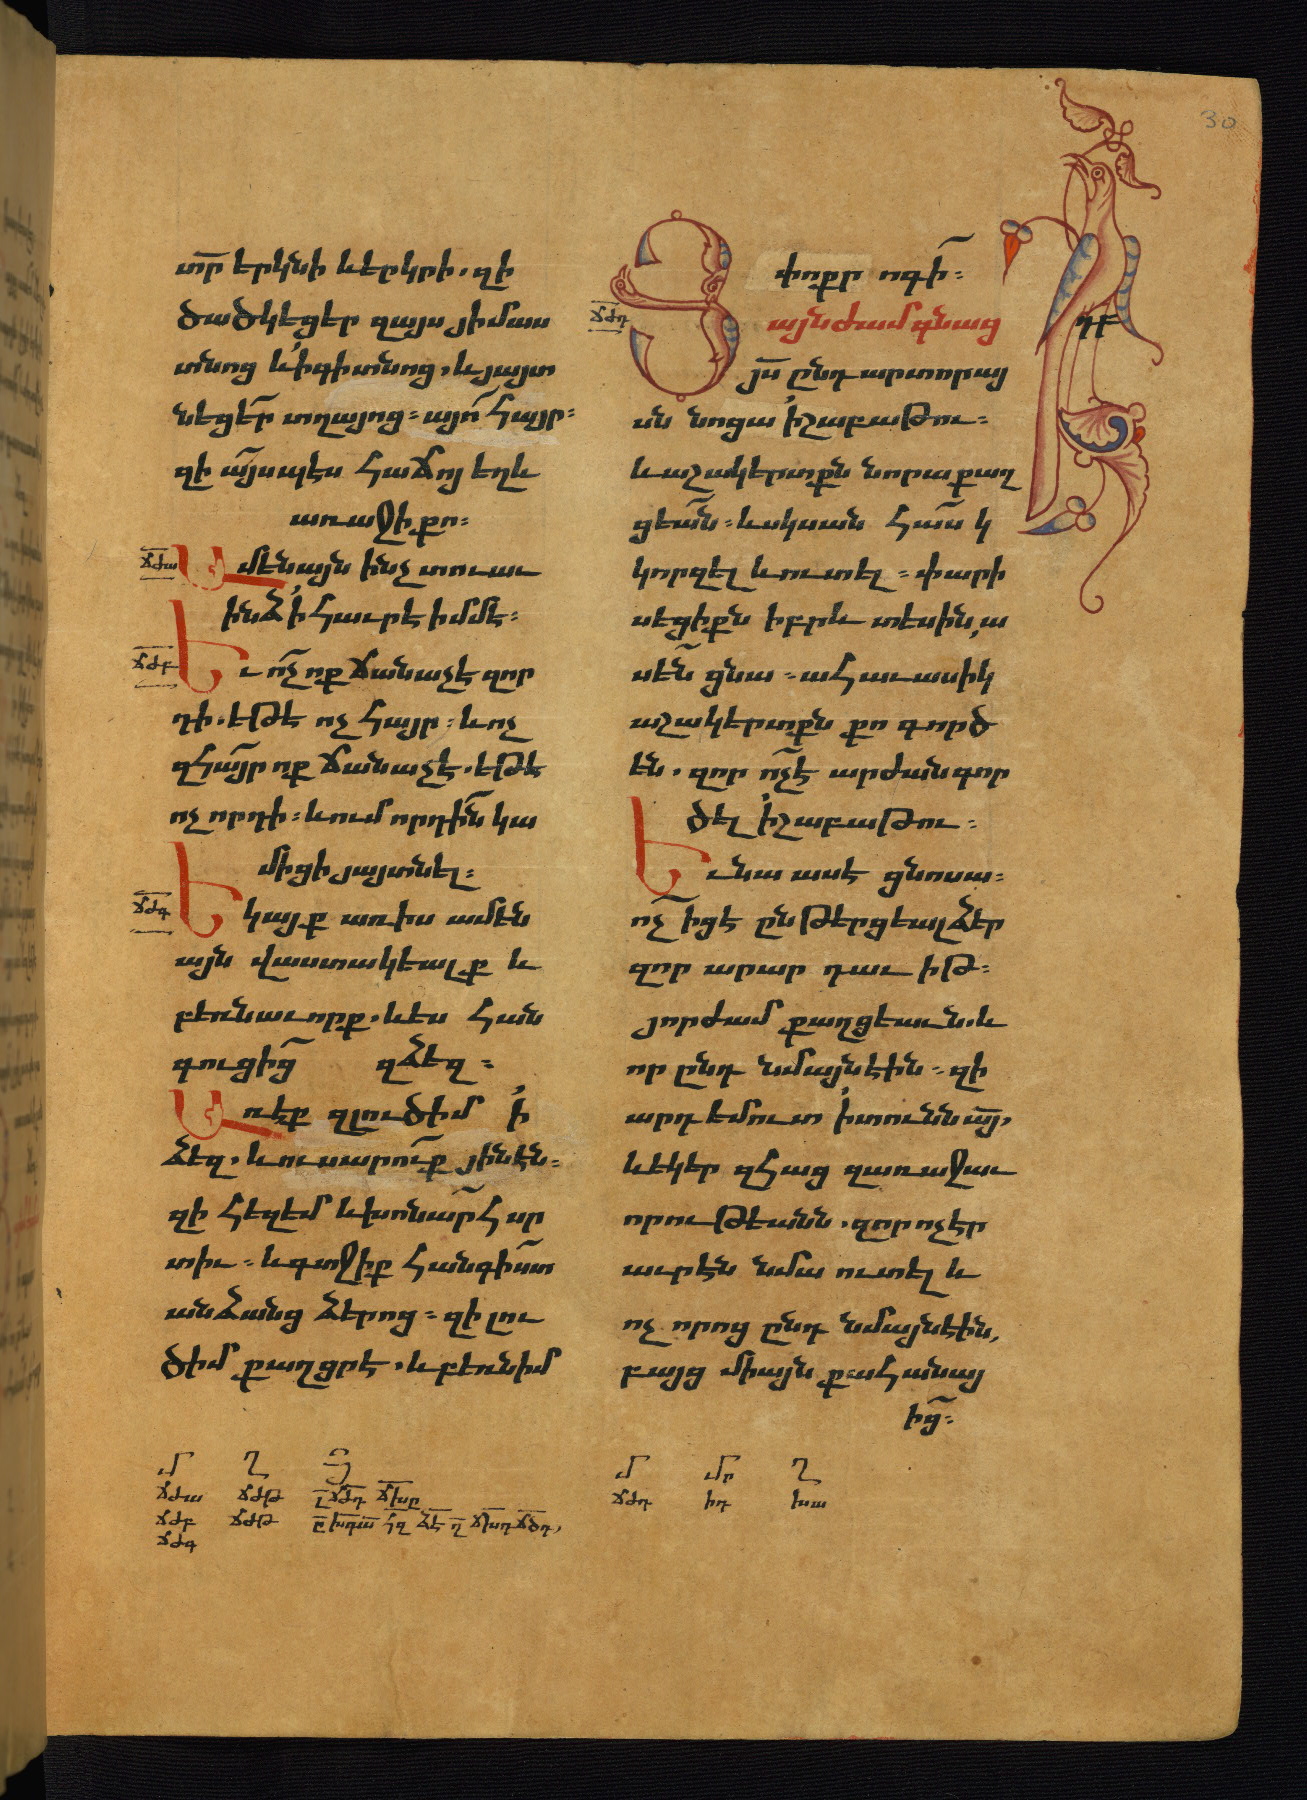 30
տր երկնի և երկրի. զի
ծածկեցեր զայս յիմաս
տնոց և ի գիտնոց. և յայտ
նեցեր տղայոց։ այո հայր։
զի այսպէս հաճոյ եղև
առաջի քո։
ՃԺԱ
Ամենայն ինչ տուաւ
ինձ ի հաւրէ իմմէ։
ՃԺԲ
Եւ ոչ ոք ճանաչէ զոր
դի. եթէ ոչ հայր։ և ոչ
զհայր ոք ճանաչէ. եթէ
ոչ որդի։ և ում որդին կա
միցի յայտնել։
ՃԺԳ
Եկայք առ իս ամեն
այն վաստակեալք և
բեռնաւորք. և ես հան
գուցից զձեզ։
Առէք զլուծ իմ ի
ձեզ. և ուսարուք յինէն։
զի հեզ եմ և խոնարհ սր
տիւ։ և գտջիք հանգիստ
անձանց ձերոց։ զի լու
ծ իմ քաղցր է. և բեռն իմ
փոքր ոգի։
ՃԺԴ
այնժամ գնաց
դԲ
յս ընդ արտորայ
սն նոցա ի շաբաթու։
և աշակերտքն նորա քաղ
ցեան։ և սկսան հաս կ
կորզել և ուտել։ փարի
սեցիքն իբրև տեսին, ա
սեն ցնա։ ահաւասիկ
աշակերտքն քո գործ
են. զոր ոչ է արժան գոր
ծել ի շաբաթու։
Եւ նա ասէ ցնոսա։
ոչ իցէ ընթերցեալ ձեր
զոր արար դաւիթ։
յորժամ քաղցեաւն. և
որ ընդ նմայն էին։ զի
արդ եմուտ ի տունն այ,
և եկեր զհաց զառաջաւ
որութեանն. զոր ոչ էր
աւրէն նմա ուտել և
ոչ որոց ընդ նմայն էին,
բայց միայն քահանայ
ից։
Մ Ղ Յ
ՃԺԱ ՃԺԹ
ՃԺԲ ՃԺԹ
ՃԺԳ
Մ Մր Ղ
ՃԺԴ ԻԴ ԽԱ